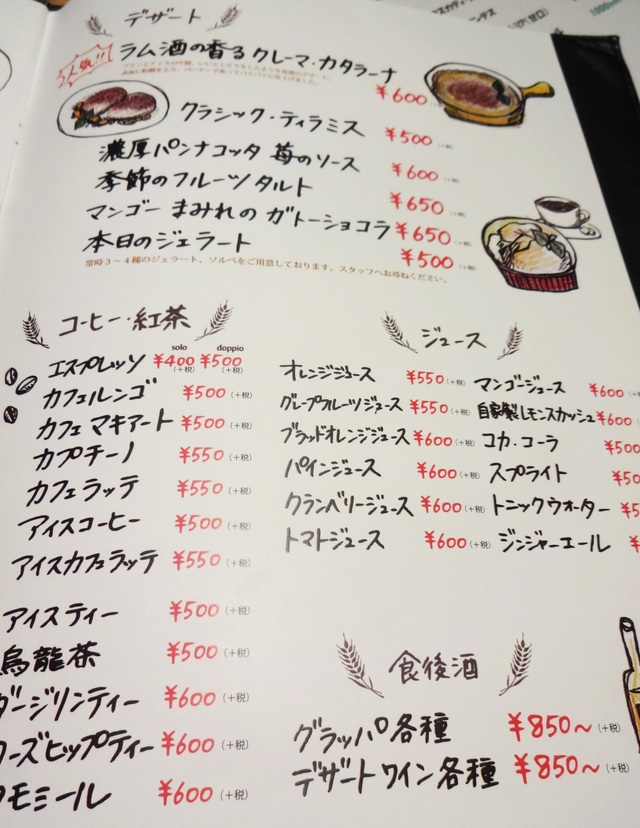 デザート
大人気!!
ラム酒の香るクレーマ・カタラーナ
¥600
クラシック・ティラミス ¥500
濃厚パンナコッタ 苺のソース ¥600
季節のフルーツタルト ¥650
マンゴーまみれのガトーショコラ ¥650
本日のジェラート ¥500
常時3〜4種のジェラート、ソルベをご用意しております。スタッフへお尋ねください。
コーヒー・紅茶
solo doppio
エスプレッソ ¥400 ¥500
(+税) (+税)
カフェルンゴ ¥500 (+税)
カフェマキアート ¥500 (+税)
カプチーノ ¥550 (+税)
カフェラッテ ¥550 (+税)
アイスコーヒー ¥500 (+税)
アイスカフェラッテ ¥550 (+税)
アイスティー ¥500 (+税)
烏龍茶 ¥500 (+税)
ダージリンティー ¥600 (+税)
ローズヒップティー ¥600 (+税)
カモミール ¥600 (+税)
ジュース
オレンジジュース ¥550 (+税)
グレープフルーツジュース ¥550 (+税)
ブラッドオレンジジュース ¥600 (+税)
パインジュース ¥600 (+税)
クランベリージュース ¥600 (+税)
トマトジュース ¥600 (+税)
マンゴージュース ¥600 (+税)
自家製レモンスカッシュ ¥600
コカ・コーラ ¥500
スプライト ¥50
トニックウォーター ¥5
ジンジャーエール ¥
食後酒
グラッパ各種 ¥850〜 (+税)
デザートワイン各種 ¥850〜 (+税)